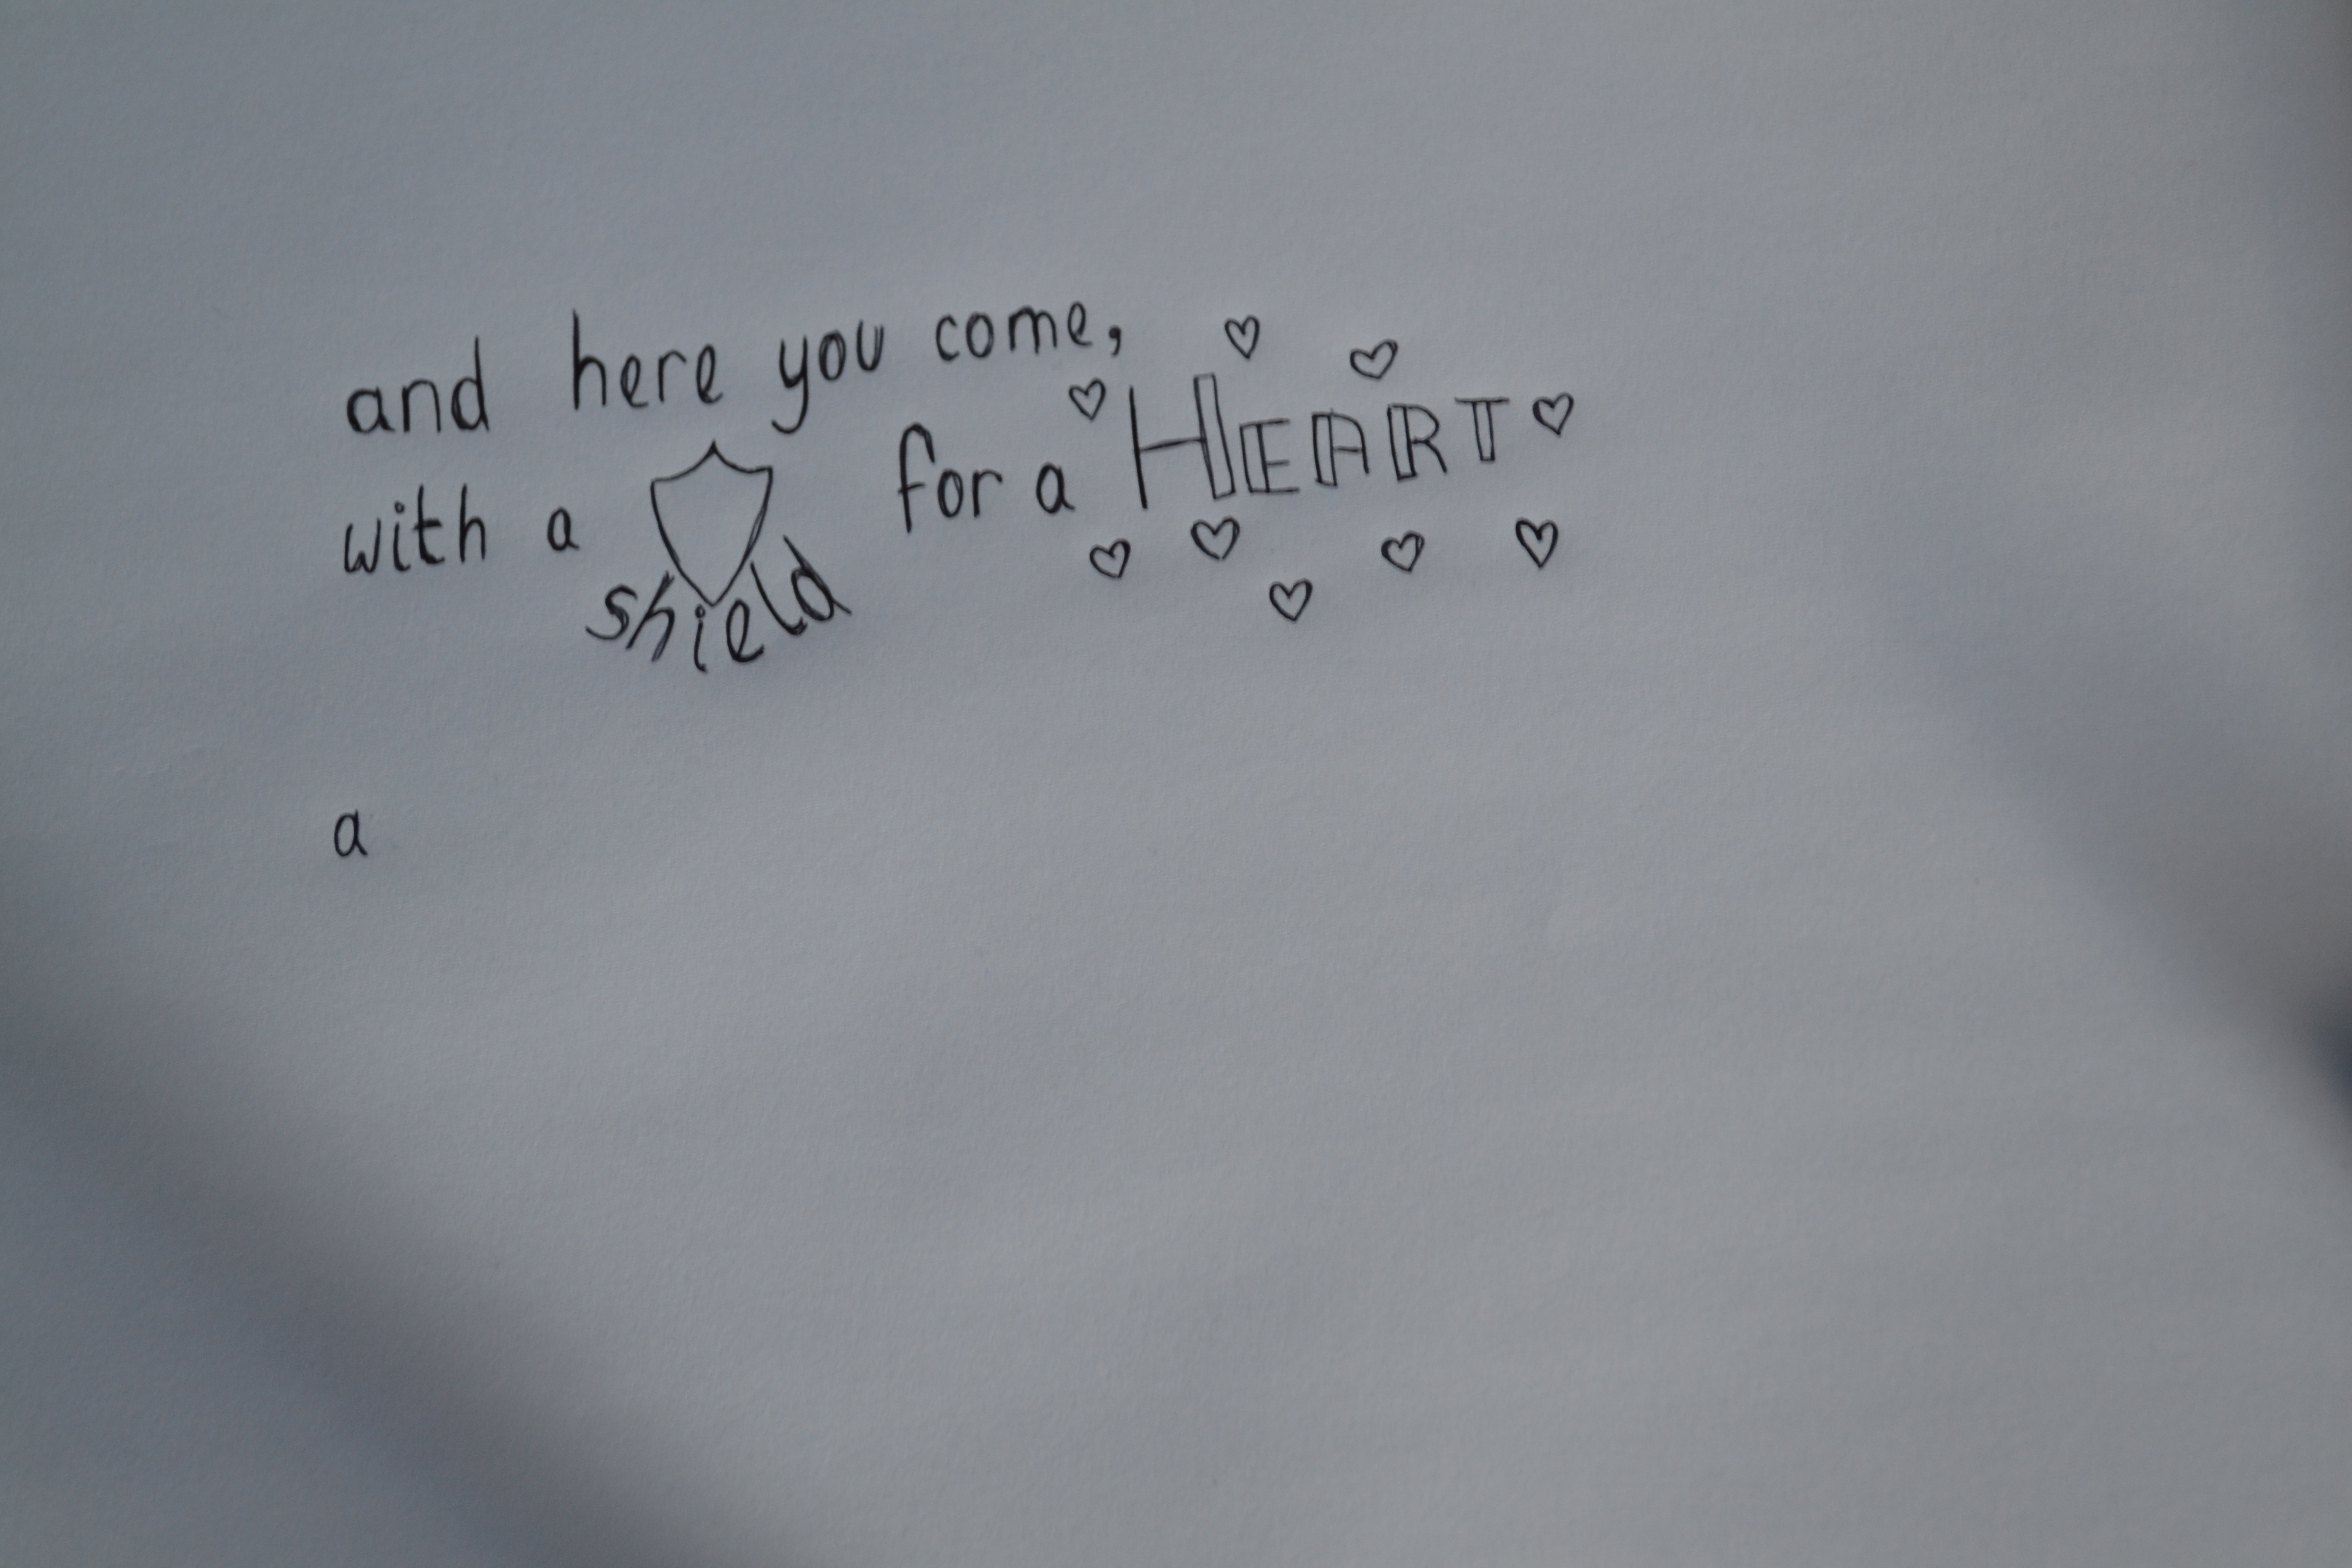 and here you come,
with a shield for a HEART
a